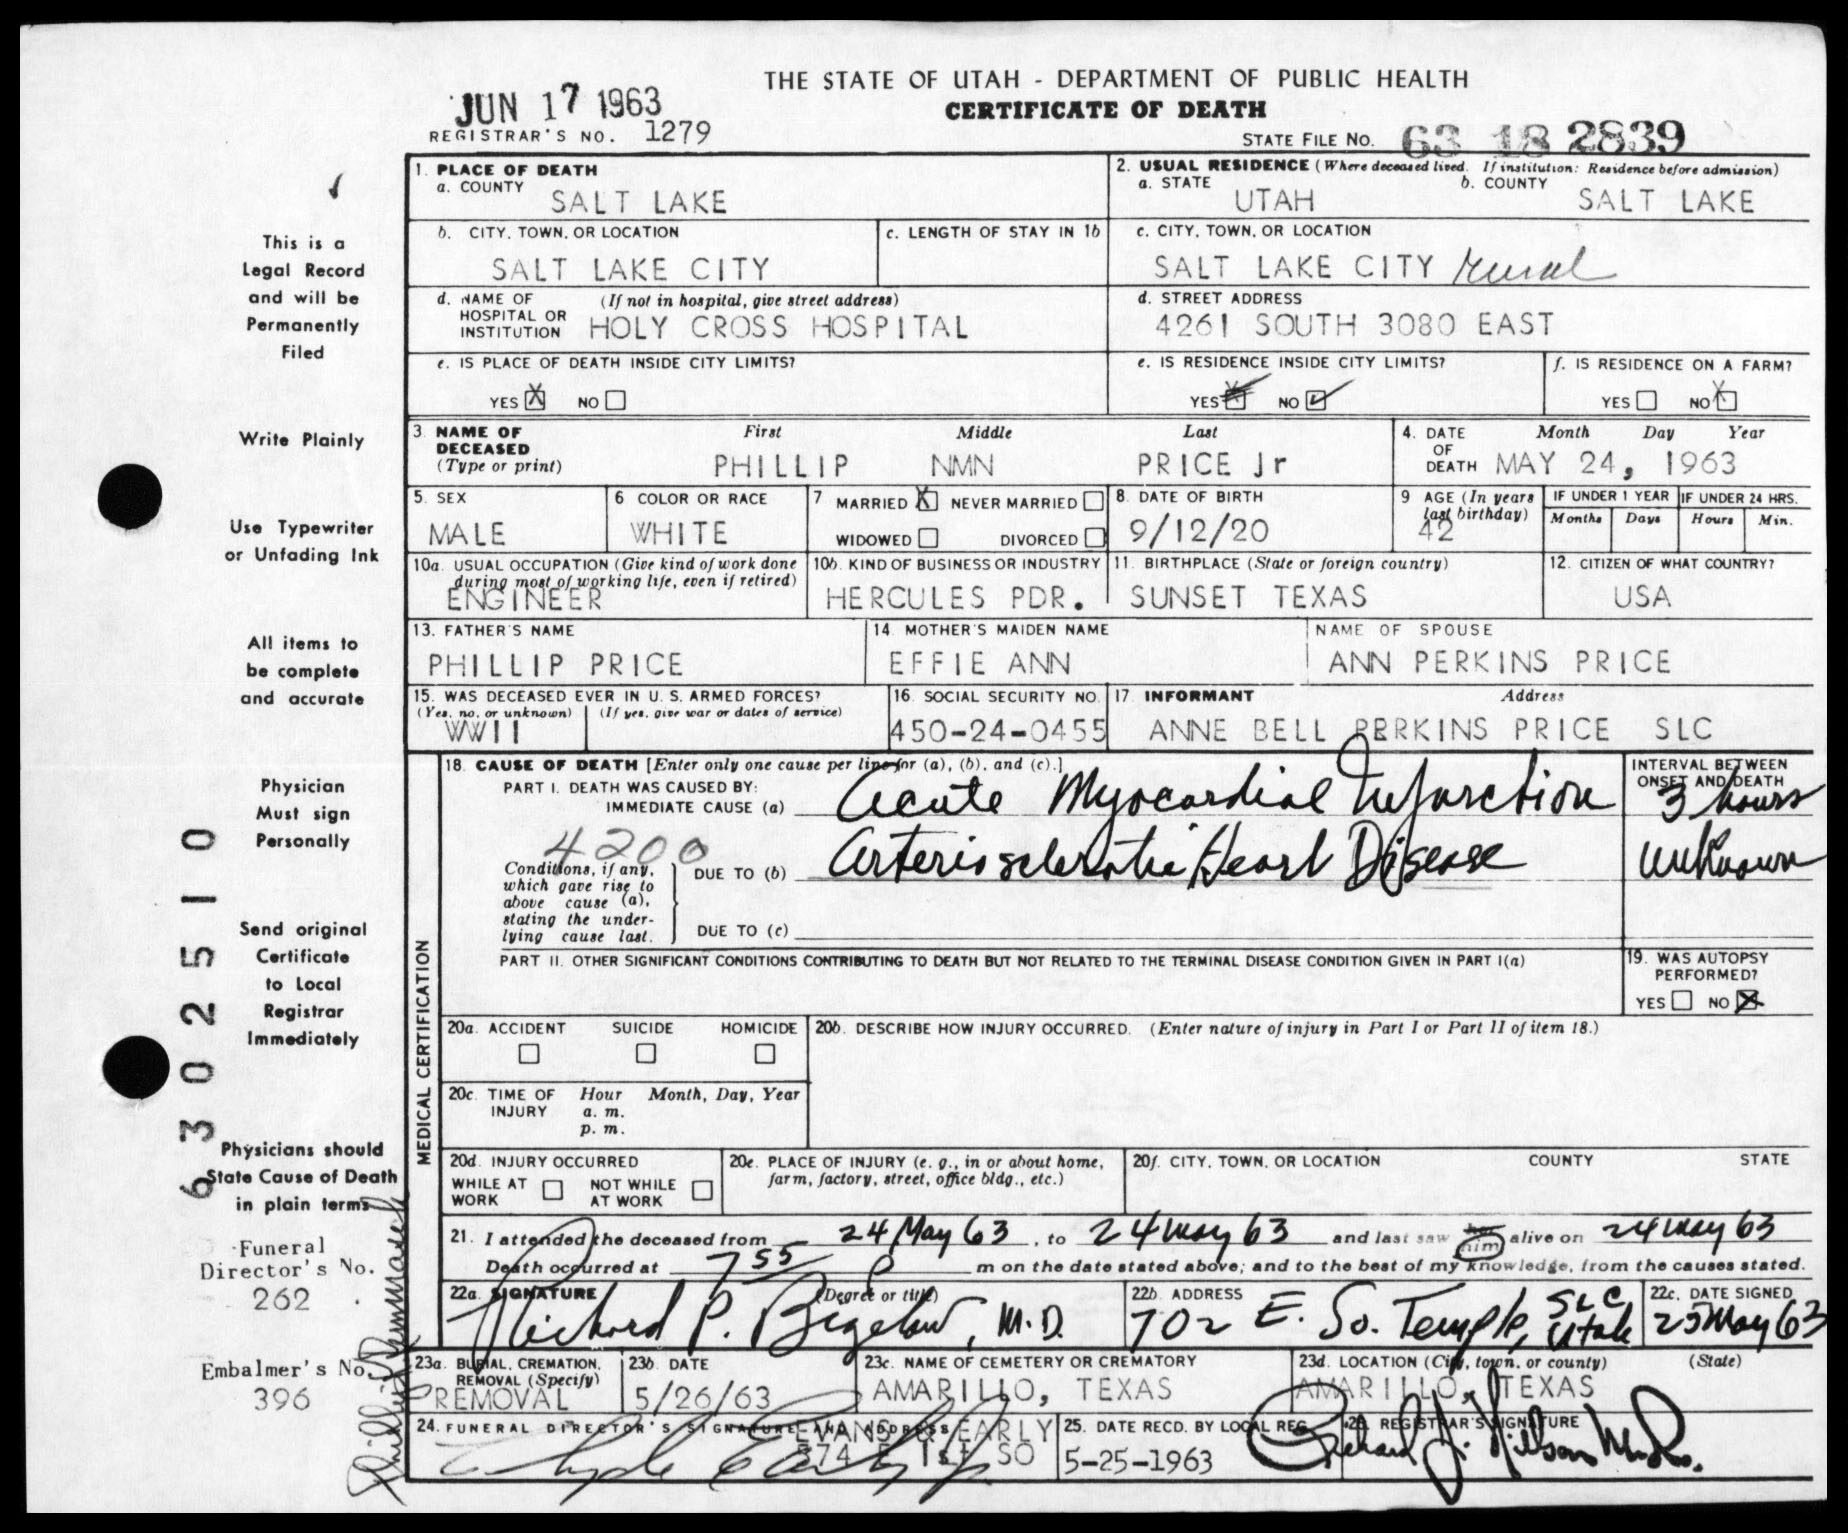 THE STATE OF UTAH - DEPARTMENT OF PUBLIC HEALTH
CERTIFICATE OF DEATH
JUN 17 1963
REGISTRAR'S NO. 1279
STATE FILE NO. 63 18 2839
This is a
Legal Record
and will be
Permanently
Filed
Write Plainly
Use Typewriter
or Unfading Ink
All items to
be complete
and accurate
Physician
Must sign
Personally
Send original
Certificate
to Local
Registrar
Immediately
Physicians should
State Cause of Death
in plain terms
Funeral
Director's No.
262
Embalmer's No.
396
6302510
1. PLACE OF DEATH
a. COUNTY
SALT LAKE
2. USUAL RESIDENCE (Where deceased lived. If institution: Residence before admission)
a. STATE UTAH b. COUNTY SALT LAKE
b. CITY, TOWN, OR LOCATION
SALT LAKE CITY
c. LENGTH OF STAY IN 1b
c. CITY, TOWN, OR LOCATION
SALT LAKE CITY rural
d. NAME OF HOSPITAL OR INSTITUTION (If not in hospital, give street address)
HOLY CROSS HOSPITAL
d. STREET ADDRESS
4261 SOUTH 3080 EAST
e. IS PLACE OF DEATH INSIDE CITY LIMITS?
YES X NO
e. IS RESIDENCE INSIDE CITY LIMITS?
YES X NO ✓
f. IS RESIDENCE ON A FARM?
YES NO X
3 NAME OF DECEASED (Type or print)
First Middle Last
PHILLIP NMN PRICE Jr
4. DATE OF DEATH Month Day Year
MAY 24, 1963
5. SEX
MALE
6 COLOR OR RACE
WHITE
7 MARRIED X NEVER MARRIED
WIDOWED DIVORCED
8. DATE OF BIRTH
9/12/20
9 AGE (In years last birthday)
42
IF UNDER 1 YEAR IF UNDER 24 HRS.
Months Days Hours Min.
10a. USUAL OCCUPATION (Give kind of work done during most of working life, even if retired)
ENGINEER
10b. KIND OF BUSINESS OR INDUSTRY
HERCULES PDR.
11. BIRTHPLACE (State or foreign country)
SUNSET TEXAS
12. CITIZEN OF WHAT COUNTRY?
USA
13. FATHER'S NAME
PHILLIP PRICE
14. MOTHER'S MAIDEN NAME
EFFIE ANN
NAME OF SPOUSE
ANN PERKINS PRICE
15. WAS DECEASED EVER IN U. S. ARMED FORCES?
(Yes, no, or unknown) (If yes, give war or dates of service)
WWII
16. SOCIAL SECURITY NO.
450-24-0455
17. INFORMANT Address
ANNE BELL PERKINS PRICE SLC
MEDICAL CERTIFICATION
18. CAUSE OF DEATH [Enter only one cause per line for (a), (b), and (c).]
PART I. DEATH WAS CAUSED BY:
IMMEDIATE CAUSE (a) Acute Myocardial Infarction
INTERVAL BETWEEN ONSET AND DEATH
3 hours
4200
Conditions, if any, which gave rise to above cause (a), stating the underlying cause last.
DUE TO (b) Arteriosclerotic Heart Disease
unknown
DUE TO (c)
PART II. OTHER SIGNIFICANT CONDITIONS CONTRIBUTING TO DEATH BUT NOT RELATED TO THE TERMINAL DISEASE CONDITION GIVEN IN PART I(a)
19. WAS AUTOPSY PERFORMED?
YES NO X
20a. ACCIDENT SUICIDE HOMICIDE
20b. DESCRIBE HOW INJURY OCCURRED. (Enter nature of injury in Part I or Part II of item 18.)
20c. TIME OF INJURY Hour Month, Day, Year
a. m.
p. m.
20d. INJURY OCCURRED
WHILE AT WORK NOT WHILE AT WORK
20e. PLACE OF INJURY (e. g., in or about home, farm, factory, street, office bldg., etc.)
20f. CITY, TOWN, OR LOCATION COUNTY STATE
21. I attended the deceased from 24 May 63, to 24 May 63 and last saw her him alive on 24 May 63
Death occurred at 7 55 P m on the date stated above; and to the best of my knowledge, from the causes stated.
22a. SIGNATURE (Degree or title)
Richard P. Bigelow, M.D.
22b. ADDRESS
702 E. So. Temple, SLC Utah
22c. DATE SIGNED
25 May 63
23a. BURIAL, CREMATION, REMOVAL (Specify)
REMOVAL
23b. DATE
5/26/63
23c. NAME OF CEMETERY OR CREMATORY
AMARILLO, TEXAS
23d. LOCATION (City, town, or county) (State)
AMARILLO, TEXAS
24. FUNERAL DIRECTOR'S SIGNATURE AND ADDRESS
EVANS & EARLY
574 E 1st SO
25. DATE RECD. BY LOCAL REG.
5-25-1963
26. REGISTRAR'S SIGNATURE